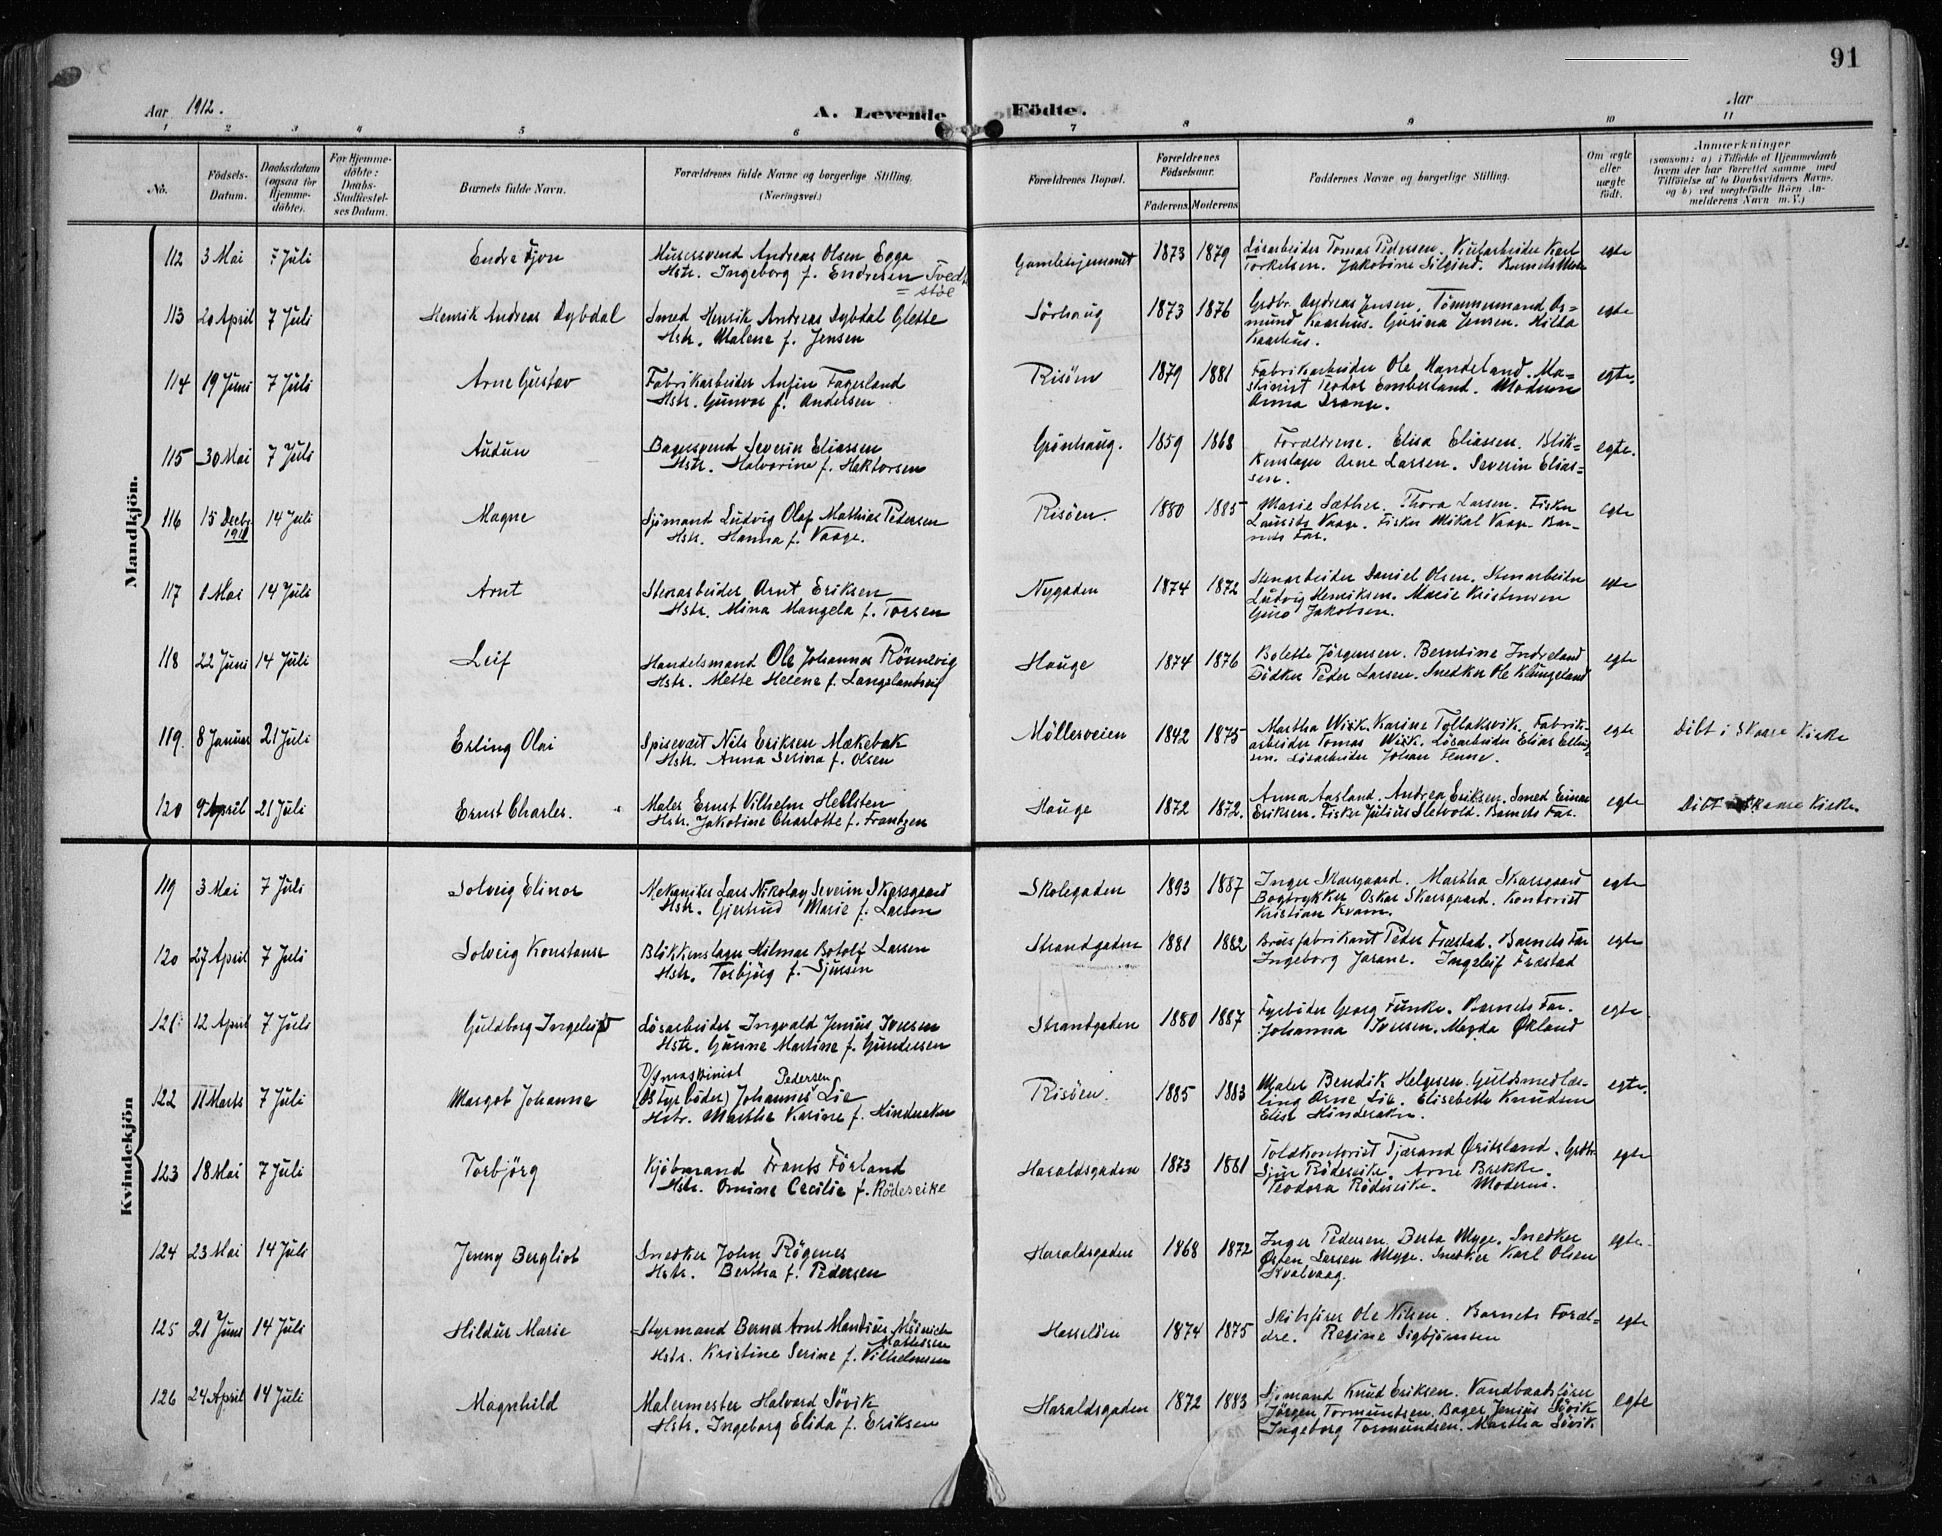 91
Aar 1912.
A. Levende Födte.
Aar
1 2 3 4 5 6 7 8 9 10 11
No.
Födsels-Datum.
Daabsdatum (ogsaa for Hjemme-döbte).
For Hjemme-döbte: Daabs-Stadfæstel-ses Datum.
Barnets fulde Navn.
Forældrenes fulde Navne og borgerlige Stilling. (Næringsvei.)
Forældrenes Bopæl.
Forældrenes Födselsaar.
Faderens. Moderens.
Faddernes Navne og borgerlige Stilling.
Om ægte eller uægte födt.
Anmærkninger
(saasom: a) i Tilfælde af Hjemmedaab
hvem der har forrettet samme med
Tilföielse af to Daabsvidners Navne.
og b) ved uægtefödte Börn An-
melderens Navn m. V.)
Mandkjön.
112 3 Mai 7 Juli Endre Fjon
Murersvend Andreas Olsen Egge
Hstr. Ingeborg f. Endresen Tvedt
= støe
Gamlehjemmet 1873 1879
Løsarbeider Tomas Pedersen. Karl
Torkelsen. Jakobine Barnets Mor
egte
113 20 April 7 Juli Henrik Andreas Dybdal
Smed Henrik Andreas Dybdal Glette
Hstr. Malene f. Jensen
Sørhaug 1873 1876
Grdbr. Andreas Jensen. Tømmermand As-
mund Kaarhus. Gurina Jensen. Hilda
Kaarhus.
egte
114 19 Juni 7 Juli Arne Gustav
Fabrikarbeider Anfin Fagerland
Hstr. Gunvor f. Andersen
Risöen 1879 1881
Fabrikarbeider Ole Handeland. Ma-
skinist Teodor Emberland. Moderen
Anna Drange.
egte.
115 30 Mai 7 Juli Audun
Bagersvend Severin Eliassen
Hstr. Halvorine f. Hektorsen
Grönhaug. 1859 1868
Foreldrene. Elisa Eliassen. Blik-
kenslager Arne Larsen. Severin Elias-
sen.
egte.
116 15 Decbr 1911 14 Juli Magne
Sjömand Ludvig Olaf Mathias Pedersen
Hstr. Hanna f. Vaage.
Risöen. 1880 1885
Marie Sæther. Thora Larsen. Fisker
Laurits Vaage. Fisker Mikal Vaage. Bar-
nets Far.
egte
117 1 Mai 14 Juli Arnt
Stenarbeider Arnt Eriksen
Hstr. Mina Mangela f. Torsen
Nygaden 1874 1872
Stenarbeider Daniel Olsen. Stenarbeider
Ludvig Henriksen. Marie Kristensen
Guro Jakobsen.
egte
118 22 Juni 14 Juli Leif
Handelsmand Ole Johannes Rönnevig
Hstr. Mette Helene f. Langelandsvig
Hauge 1874 1876
Bolette Jørgensen. Berntine Indreland
Bödker Peder Larsen. Snedker Ole Klungeland
egte
119. 8 Januar 21 Juli Erling Olai
Spisevært Nils Eriksen Mækebak
Hstr. Anna Serina f. Olsen
Möllerveien 1842 1875
Martha Wiik. Karine Tollaksvik. Fabrik-
arbeider Tomas Wiik. Løsarbeider Elias Elling-
sen. Løsarbeider Johan Tenne.
egte
Döbt i Skaare Kirke
120 9 April 21 Juli Ernst Charles.
Maler Ernst Vilhelm Hellsten
Hstr. Jakobine Charlotte f. Frantzen
Hauge 1872 1872.
Anna Aasland. Andrea Eriksen. Smed Einar
Eriksen. Fisker Julius Sletvold. Barnets Far.
egte
Döbt i Skaare Kirke
Kvindekjön
119 3 Mai 7 Juli Solveig Elinor
Mekaniker Lars Nikolay Severin Skarsgaard
Hstr. Gjertrud Marie f. Larsen
Skolegaden 1893 1887
Inger Skarsgaard. Martha Skarsgaard
Bogtrykker Oskar Skarsgaard. Kontorist
Kristian Kvam.
egte
120 27 April 7 Juli Solveig Konstanse
Blikkenslager Hilmar Botolf Larsen
Hstr. Torbjörg f. Sjursen
Strandgaden 1881 1882
Brusfabrikant Peder Fræstad. Barnets Far
Ingeborg Jarane. Ingeleif Fræstad
egte
121 12 April 7 Juli Guldborg Ingeleif
Løsarbeider Ingvald Jenius Iversen
Hstr. Gurine Martine f. Gundersen
Strandgaden 1880 1887
Fyrbøder Georg Funke. Barnets Far.
Johanna Iversen. Magda Økland
egte.
122 11 Marts 7 Juli Margot Johanne
D/smaskinist Pedersen
(Fyrböder) Johannes Lie
Hstr. Martha Karine f. Hinderaker
Risöen. 1885 1883
Maler Bendik Helgesen. Guldsmedlær-
ling Arne Lie. Elisabeth Knudsen
Elise Hinderaker.
egte.
123 18 Mai 7 Juli Torbjörg
Kjöbmand Frants Förland
Hstr. Omine Cecilie f. Rödseike
Haraldsgaden 1873 1881
Toldkontorist Tjærand Øritsland. Grdbr.
Sjur Rödseike. Arne Brekke.
Teodora Rödseike. Moderen.
egte
124 23 Mai 14 Juli Jenny Bergliot
Snedker John Røgenes
Hstr. Bertha f. Pedersen
Haraldsgaden 1868 1872
Inger Pedersen. Berta Myge. Snedker
Østen Larsen Myge. Snedker Karl Olsen
Kvalvaag.
egte.
125 21 Juni 14 Juli Hildur Marie
Styrmand Berner Arnt Mantius Meinich
Mathisen
Hstr. Kristine Serine f. Vilhelmsen
Hasselöen 1874 1875
Skibsfører Ole Nilsen. Barnets Foræl-
dre. Regine Sigbjörnsen
egte
126 24 April 14 Juli Magnhild
Malermester Halvard Sövik
Hstr. Ingeborg Elida f. Eriksen
Haraldsgaden 1872 1883
Sjömand Knud Eriksen. Vandbaadsfører
Jørgen Tormundsen. Bager Jenius Søvik
Ingeborg Tormundsen. Martha Søvik
egte